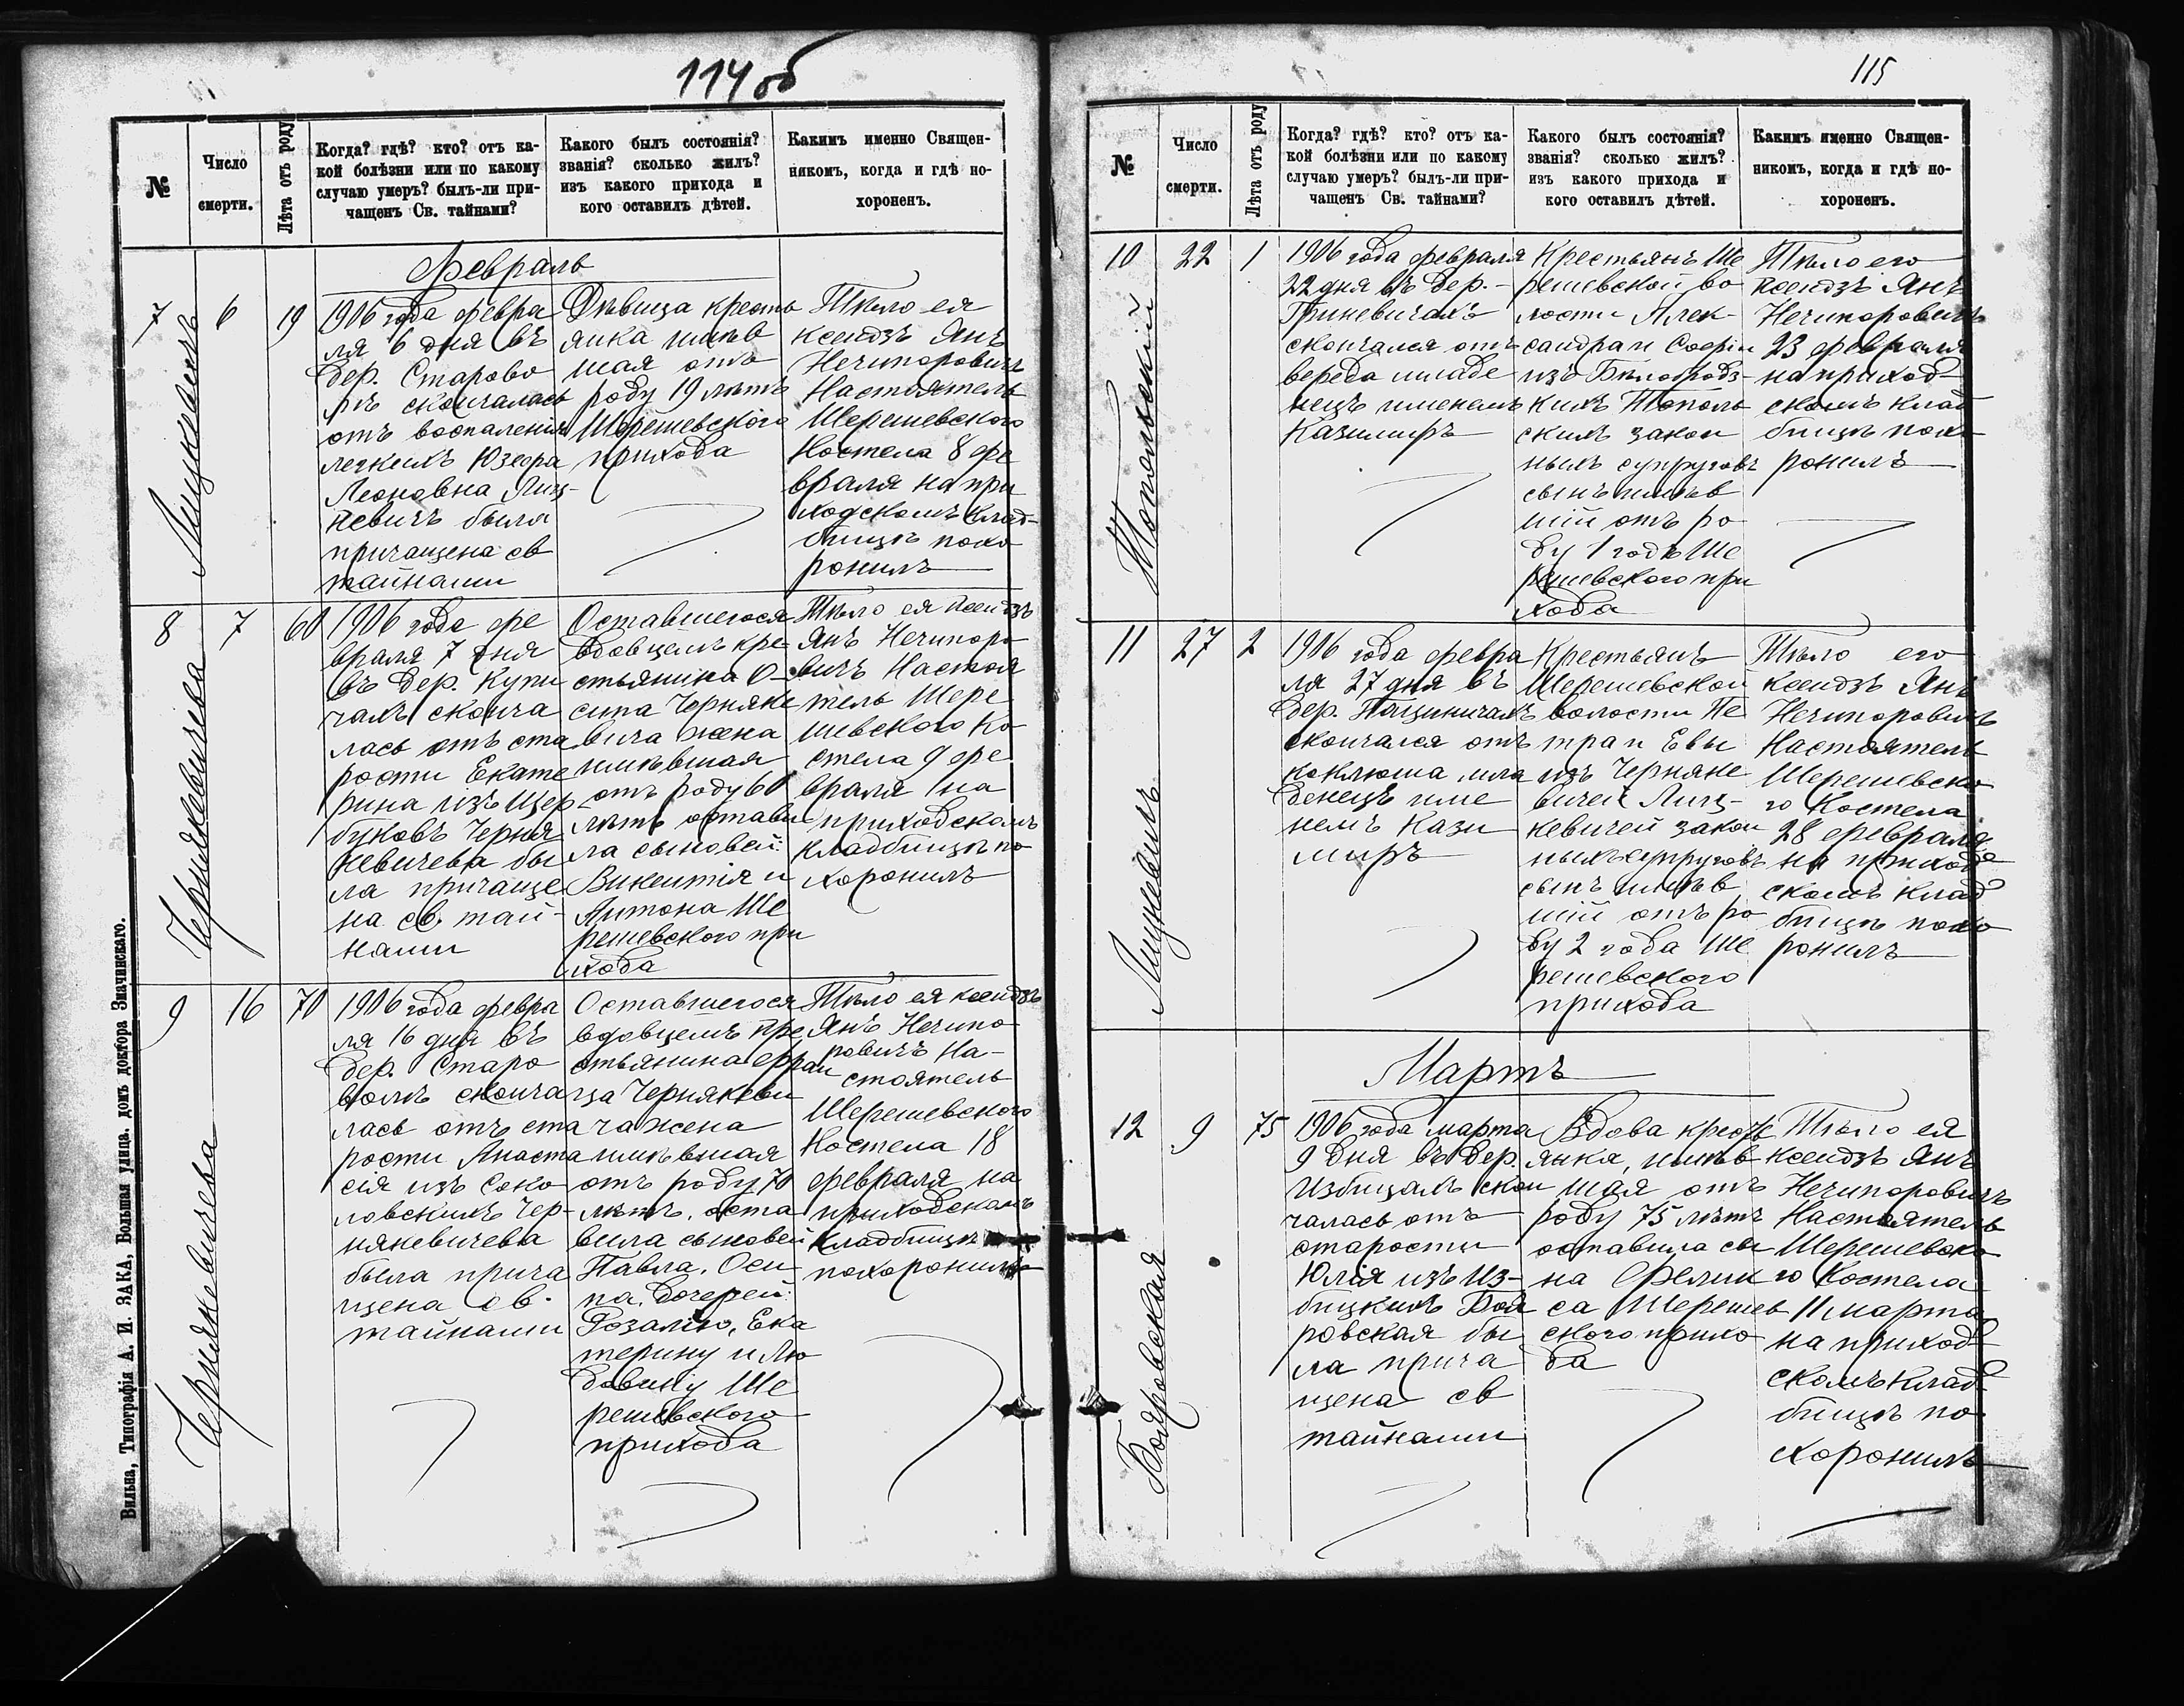 114 об
№
Число
смерти.
Лѣта отъ роду
Когда? гдѣ? кто? отъ ка-
кой болѣзни или по какому
случаю умеръ? былъ-ли при-
чащенъ Св. тайнами?
Какого былъ состоянія?
званія? сколько жилъ?
изъ какого прихода и
кого оставилъ дѣтей.
Какимъ именно Священ-
никомъ, когда и гдѣ по-
хороненъ.
Февраль
7
Лицкевичъ
6
19
1906 года февра
ля 6 дня въ
дер. Старово
лѣ скончалась
отъ воспаленія
легкихъ Юзефа
Леоновна Лиц-
кевичъ была
причащена св
тайнами
Дѣвица кресть
янка имѣв
шая отъ
роду 19 лѣтъ
Шерешевского
прихода
Тѣло ея
ксендзъ Янъ
Нечипоровичъ
Настоятель
Шерешевского
Костела 8 фе
враля на при
ходскомъ клад-
бищѣ похо
ронилъ
8
Чернякевичева
7
60
1906 года фе
враля 7 дня
въ дер. Купи
чахъ сконча
лась отъ ста
рости Екате
рина изъ Щер
буковъ Черня
кевичева бы
ла причаще
на св. тай-
нами
Оставшегося
вдовцемъ кре
стьянина О-
сипа Черняке
вича жена
имѣвшая
отъ роду 60
лѣтъ остави
ла сыновей:
Викентія и
Антона Ше
решевского при
хода
Тѣло ея ксендзъ
Янъ Нечипоро
вичъ Настоя
тель Шере
шевского Ко
стела 9 фе
враля на
приходскомъ
кладбищѣ по
хоронилъ
9
Чернякевичева
16
70
1906 года февра
ля 16 дня въ
дер. Старо
волѣ сконча
лась отъ ста
рости Анаста
сія изъ Соко
ловскихъ Чер-
някевичева
была прича
щена св.
тайнами
Оставшегося
вдовцемъ кре
стьянина Фран
ца Чернякеви
ча жена
имѣвшая
отъ роду 70
лѣтъ, оста
вила сыновей
Павла, Оси
па, дочерей:
Розалію, Ека
терину и Лю
двику Ше
решевского
прихода
Тѣло ея ксендзъ
Янъ Нечипо
ровичъ На-
стоятель
Шерешевского
Костела 18
февраля на
приходскомъ
кладбищѣ
похоронилъ
Вильна, Типографія А. И. ЗАКА, Большая улица, домъ доктора Значинскаго.
115
№
Число
смерти.
Лѣта отъ роду
Когда? гдѣ? кто? отъ ка-
кой болѣзни или по какому
случаю умеръ? былъ-ли при-
чащенъ Св. тайнами?
Какого былъ состоянія?
званія? сколько жилъ?
изъ какого прихода и
кого оставилъ дѣтей.
Какимъ именно Священ-
никомъ, когда и гдѣ по-
хороненъ.
10
22
1
1906 года февраля
22 дня въ дер.-
Гриневичахъ
скончался отъ
вереда младе
нецъ именемъ
Казимиръ
Крестьянъ Ше
решевской во
лости Алек-
сандра и Софіи
изъ
кихъ Тополь
скихъ закон
ныхъ супруговъ
сынъ имѣв
шій отъ ро
ду 1 годъ Ше
решевского при
хода
Тѣло его
ксендзъ Янъ
Нечипоровичъ
23 февраля
на приход-
скомъ клад
бищѣ похо
ронилъ
11
Лицкевичъ
27
2
1906 года февра
ля 27 дня въ
дер.
скончался отъ
коклюша мла
денецъ име
немъ Кази
миръ
Крестьянъ
Шерешевской
волости Пе
тра и Евы
изъ Черняке
вичей Лиц-
кевичей закон
ныхъ супруговъ
сынъ имѣв
шій отъ ро
ду 2 года Ше
решевского
прихода
Тѣло его
ксендзъ Янъ
Нечипоровичъ
Настоятель
Шерешевско
го Костела
28 февраля
на приход
скомъ клад
бищѣ похо
ронилъ
Мартъ
12
Бояровская
9
75
1906 года марта
9 дня въ дер.
Избицахъ скон
чалась отъ
старости
Юлія изъ Из-
бицкихъ Боя
ровская бы
ла прича
щена св
тайнами
Вдова кресть
янка, имѣв
шая отъ
роду 75 лѣтъ
оставила сы
на Фелик
са Шерешев
ского прихо
да
Тѣло ея
ксендзъ Янъ
Нечипоровичъ
Настоятель
Шерешевско
го Костела
11 марта
на приход
скомъ клад
бищѣ по
хоронилъ